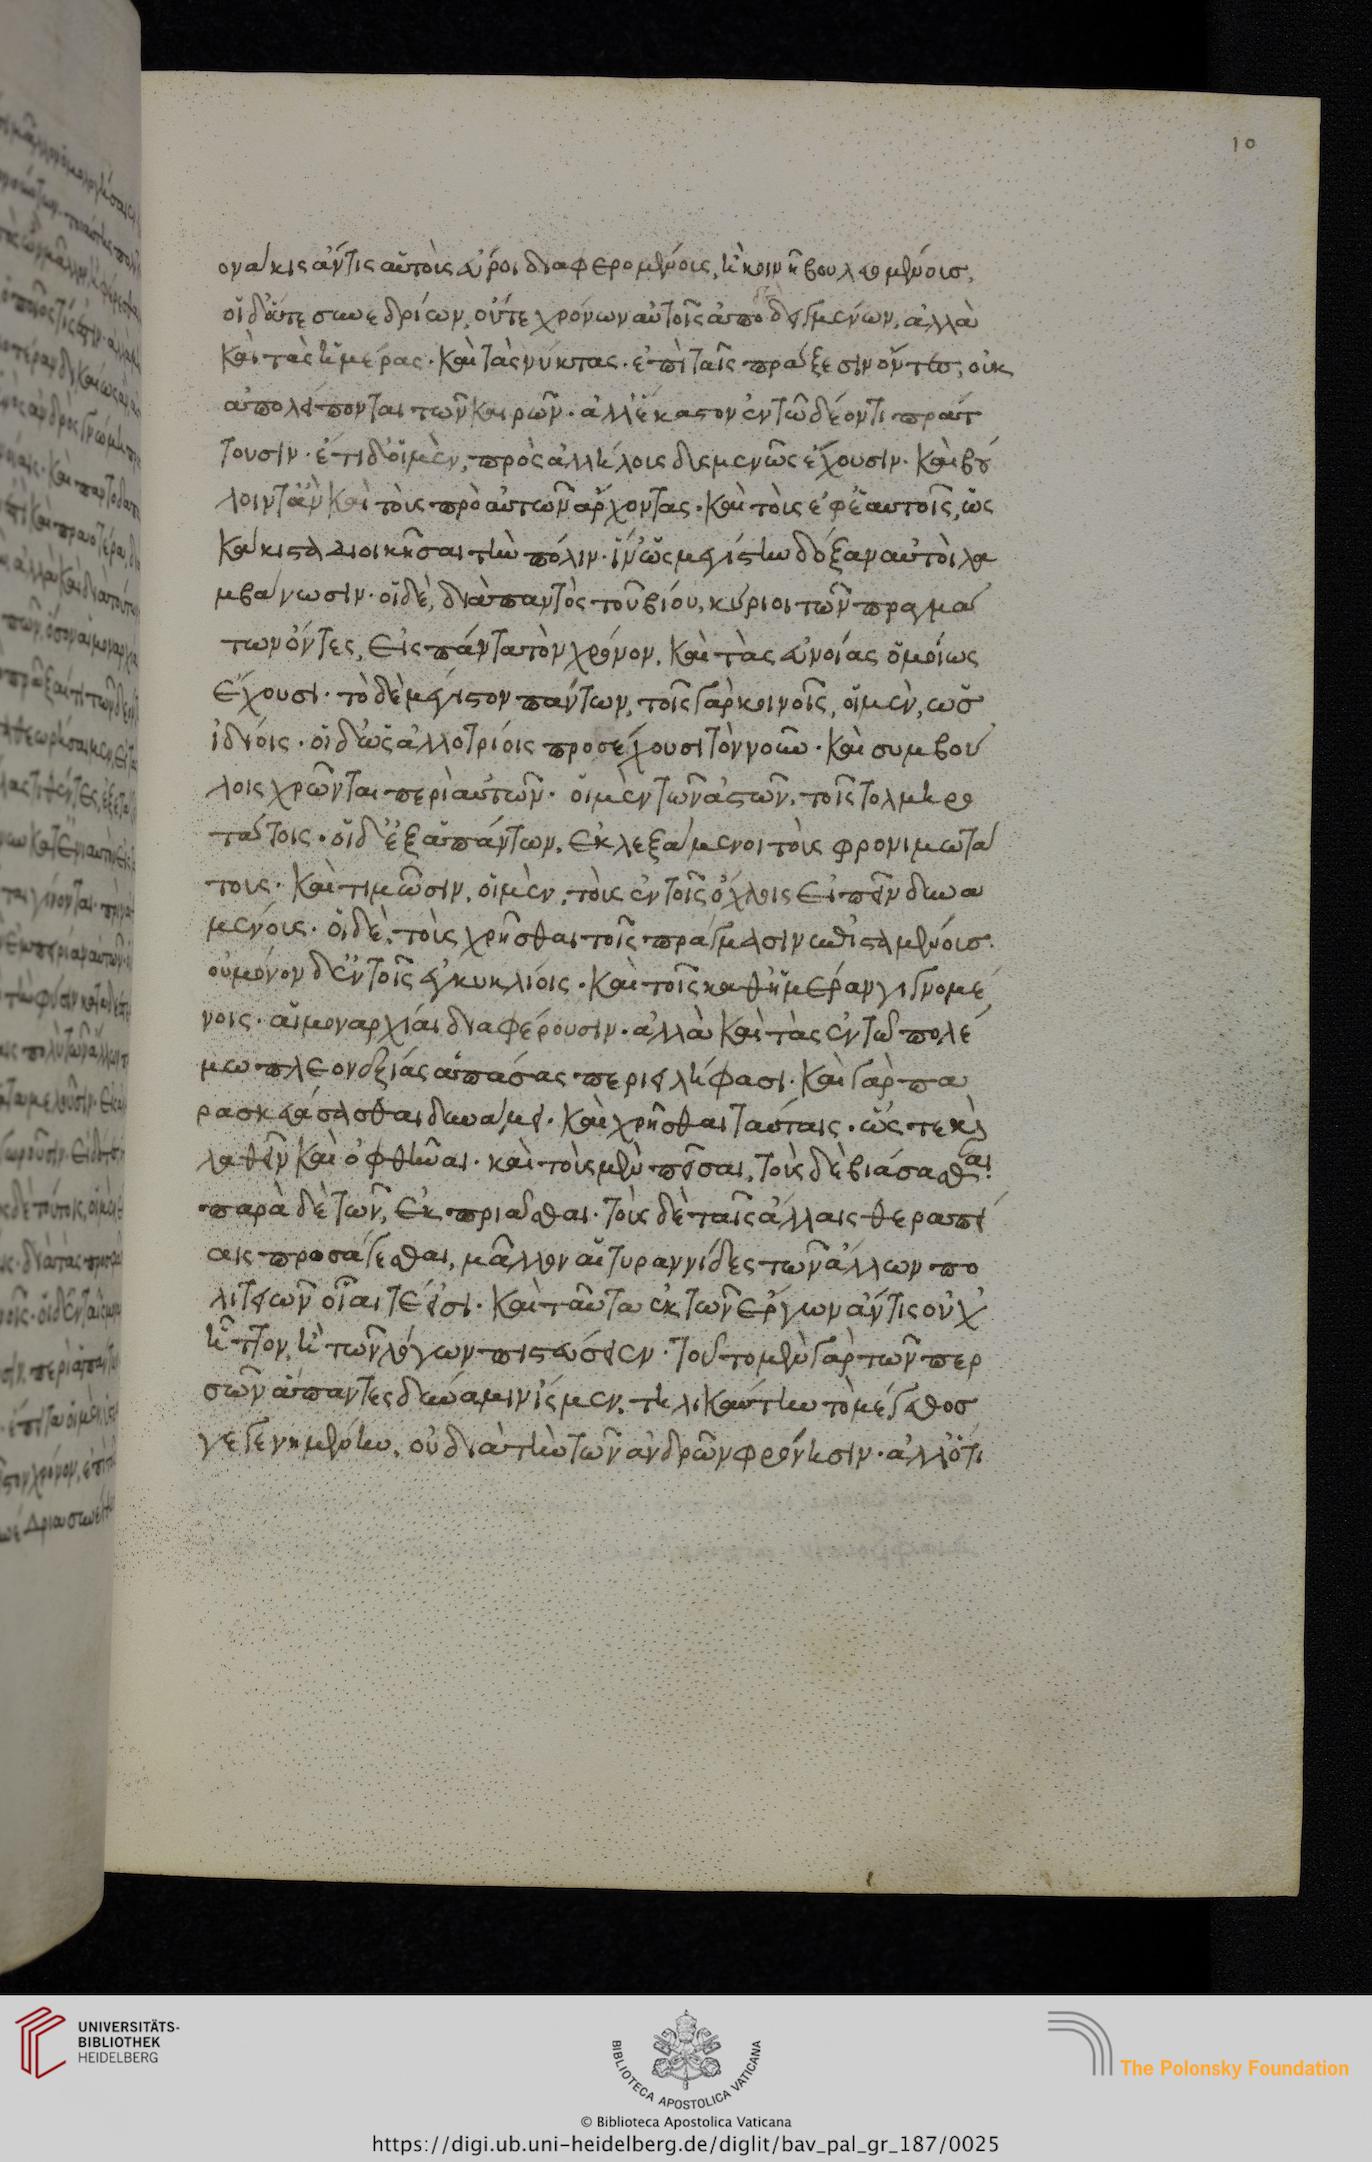 ονάκις ἄν τις αὐτοὺς εὕροι διαφερομένους, ἢ κοινῇ βουλευομένους.
οἱ δ' οὔτε συνεδρίων, οὔτε χρόνων αὐτοῖς ἀποδεδειγμένων, ἀλλὰ
καὶ τὰς ἡμέρας · καὶ τὰς νύκτας · ἐπὶ ταῖς πράξεσιν ὄντες, οὐκ
ἀπολείπονται τῶν καιρῶν · ἀλλ' ἕκαστον ἐν τῶ δέοντι πράτ
τουσιν · ἔτι δ' οἱ μὲν, πρὸς ἀλλήλους δυσμενῶς ἔχουσιν · καὶ βού
λοιντ' ἂν καὶ τοὺς πρὸ αὑτῶν ἄρχοντας · καὶ τοὺς ἐφ' ἑαυτοῖς, ὡς
κάκιστα διοικῆσαι τὴν πόλιν · ἵν' ὡς μεγίστην δόξαν αὐτοὶ λα
μβάνωσιν · οἱ δὲ, διὰ παντὸς τοῦ βίου, κύριοι τῶν πραγμά
των ὄντες, εἰς πάντα τὸν χρόνον, καὶ τὰς εὐνοίας ὁμοίως
ἔχουσι · τὸ δὲ μέγιστον πάντων, τοῖς γὰρ κοινοῖς, οἱ μὲν, ὡς
ἰδίοις · οἱ δ' ὡς ἀλλοτρίοις προσέχουσι τὸν νοῦν · καὶ συμβού
λοις χρῶνται περὶ αὐτῶν · οἱ μὲν τῶν ἀστῶν, τοῖς τολμηρο
τάτοις · οἱ δ' ἐξ ἁπάντων, ἐκλεξάμενοι τοὺς φρονιμωτά
τους · καὶ τιμῶσιν, οἱ μὲν, τοὺς ἐν τοῖς ὄχλοις εἰπεῖν δυνα
μένους · οἱ δὲ, τοὺς χρῆσθαι τοῖς πράγμασιν ἐπισταμένους.
οὐ μόνον δ' ἐν τοῖς ἐγκυκλίοις · καὶ τοῖς καθ' ἡμέραν γιγνομέ
νοις · αἱ μοναρχίαι διαφέρουσιν · ἀλλὰ καὶ τὰς ἐν τῶ πολέ
μω πλεονεξίας ἁπάσας περιειλήφασι · καὶ γὰρ πα
ρασκευάσασθαι δυνάμεις · καὶ χρῆσθαι ταύταις · ὥς τε καὶ
λαθεῖν καὶ ὀφθῆναι · καὶ τοὺς μὲν πεῖσαι, τοὺς δὲ βιάσασθαι
παρὰ δὲ τῶν, ἐκπρίασθαι · τοὺς δὲ ταῖς ἄλλαις θεραπεί
αις προσάγεσθαι, μᾶλλον αἱ τυραννίδες τῶν ἄλλων πο
λιτειῶν οἷαί τ' εἰσί · καὶ ταῦτα ἐκ τῶν ἔργων ἄν τις οὐχ
ἧττον, ἢ τῶν λόγων πιστεύσειεν · τοῦτο μὲν γὰρ τῶν περ
σῶν ἅπαντες δύναμιν ἴσμεν, τηλικαύτην τὸ μέγεθος
γεγενημένην, οὐ διὰ τὴν τῶν ἀνδρῶν φρόνησιν · ἀλλ' ὅτι
10
UNIVERSITÄTS-
BIBLIOTHEK
HEIDELBERG
BIBLIOTECA APOSTOLICA VATICANA
© Biblioteca Apostolica Vaticana
The Polonsky Foundation
https://digi.ub.uni-heidelberg.de/diglit/bav_pal_gr_187/0025